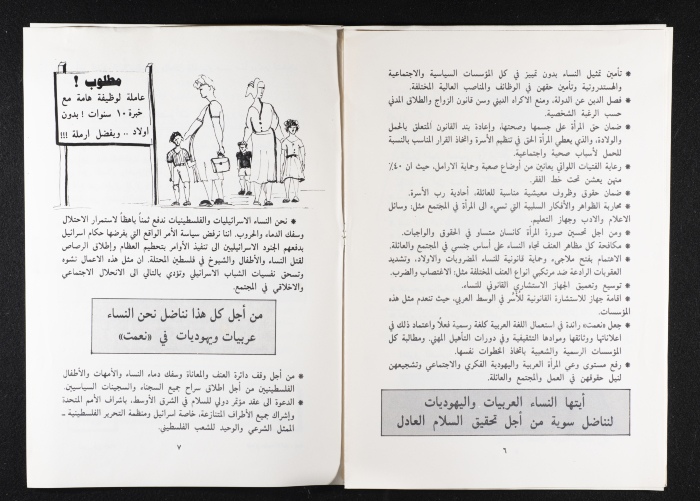 * تأمين تمثيل النساء بدون تمييز في كل المؤسسات السياسية والاجتماعية
والهستدروتية وتأمين حقهن في الوظائف والمناصب العالية المختلفة.
* فصل الدين عن الدولة، ومنع الاكراه الديني وسن قانون الزواج والطلاق المدني
حسب الرغبة الشخصية.
* ضمان حق المرأة على جسمها وصحتها، وإعادة بند القانون المتعلق بالحمل
والولادة، والذي يعطي المرأة الحق في تنظيم الأسرة واتخاذ القرار المناسب بالنسبة
للحمل لأسباب صحية واجتماعية.
* رعاية الفتيات اللواتي يعانين من أوضاع صعبة وحماية الارامل، حيث ان ٤٠٪
منهن يعشن تحت خط الفقر.
* ضمان حقوق وظروف معيشية مناسبة للعائلة، أحادية رب الأسرة.
* محاربة الظواهر والأفكار السلبية التي تسيء الى المرأة في المجتمع مثل: وسائل
الاعلام والادب وجهاز التعليم.
* ومن اجل تحسين صورة المرأة كانسان متساو في الحقوق والواجبات.
* مكافحة كل مظاهر العنف تجاه النساء على أساس جنسي في المجتمع والعائلة.
* الاهتمام بفتح ملاجىء وحماية قانونية للنساء المضروبات والاولاد، وتشديد
العقوبات الرادعة ضد مرتكبي انواع العنف المختلفة مثل: الاغتصاب والضرب.
* توسيع وتعميق الجهاز الاستشاري القانوني للنساء.
* اقامة جهاز للاستشارة القانونية للأسر في الوسط العربي، حيث تنعدم مثل هذه
المؤسسات.
* جعل «نعمت» رائدة في استعمال اللغة العربية كلغة رسمية فعلاً واعتماد ذلك في
اعلاناتها ووثائقها وموادها التثقيفية وفي دورات التأهيل المهني. ومطالبة كل
المؤسسات الرسمية والشعبية باتخاذ الخطوات نفسها.
* رفع مستوى وعي المرأة العربية واليهودية الفكري والاجتماعي وتشجيعهن
لنيل حقوقهن في العمل والمجتمع والعائلة.
أيتها النساء العربيات واليهوديات
لنناضل سوية من أجل تحقيق السلام العادل
٦
مطلوب !
عاملة لوظيفة هامة مع
خبرة ١٠ سنوات ! بدون
اولاد .. ويفضل ارملة !!!
* نحن النساء الاسرائيليات والفلسطينيات ندفع ثمناً باهظاً لاستمرار الاحتلال
وسفك الدماء والحروب. اننا نرفض سياسة الأمر الواقع التي يفرضها حكام اسرائيل
بدفعهم الجنود الاسرائيليين الى تنفيذ الأوامر بتحطيم العظام وإطلاق الرصاص
لقتل النساء والأطفال والشيوخ في فلسطين المحتلة. ان مثل هذه الاعمال تشوه
وتسحق نفسيات الشباب الاسرائيلي وتؤدي بالتالي الى الانحلال الاجتماعي
والاخلاقي في المجتمع.
من أجل كل هذا نناضل نحن النساء
عربيات ويهوديات في «نعمت»
* من أجل وقف دائرة العنف والمعاناة وسفك دماء النساء والأمهات والأطفال
الفلسطينيين من أجل اطلاق سراح جميع السجناء والسجينات السياسيين.
* الدعوة الى عقد مؤتمر دولي للسلام في الشرق الأوسط، باشراف الأمم المتحدة
وإشراك جميع الأطراف المتنازعة، خاصة اسرائيل ومنظمة التحرير الفلسطينية ــ
الممثل الشرعي والوحيد للشعب الفلسطيني.
٧